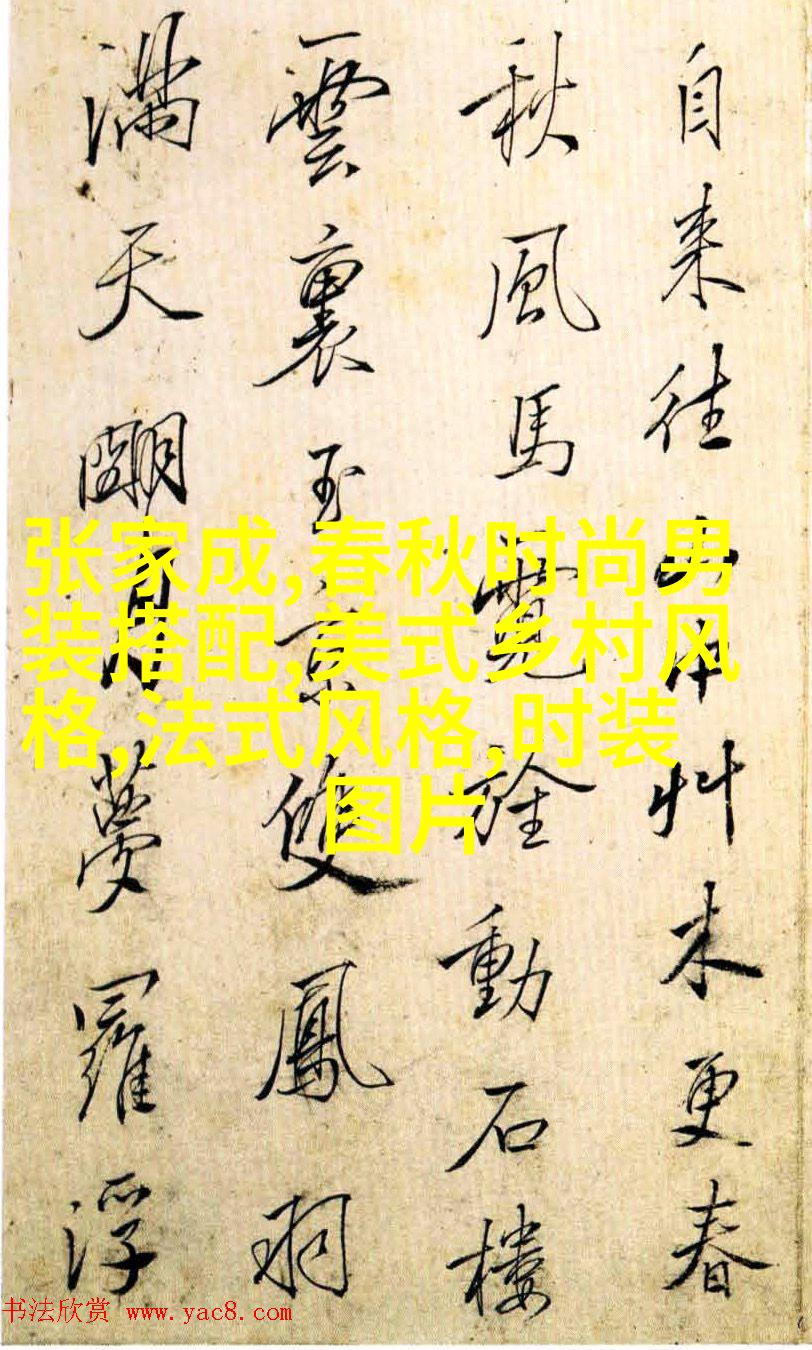 自来往山中艸木更春
秋風馬霓旌動石樓
雲裏玉京雙鳳羽
滿天月夢羅浮
张家成,春秋时尚男
装搭配,美式乡村风
格,法式风格,时装
图片
书法欣赏 www.yac8.com